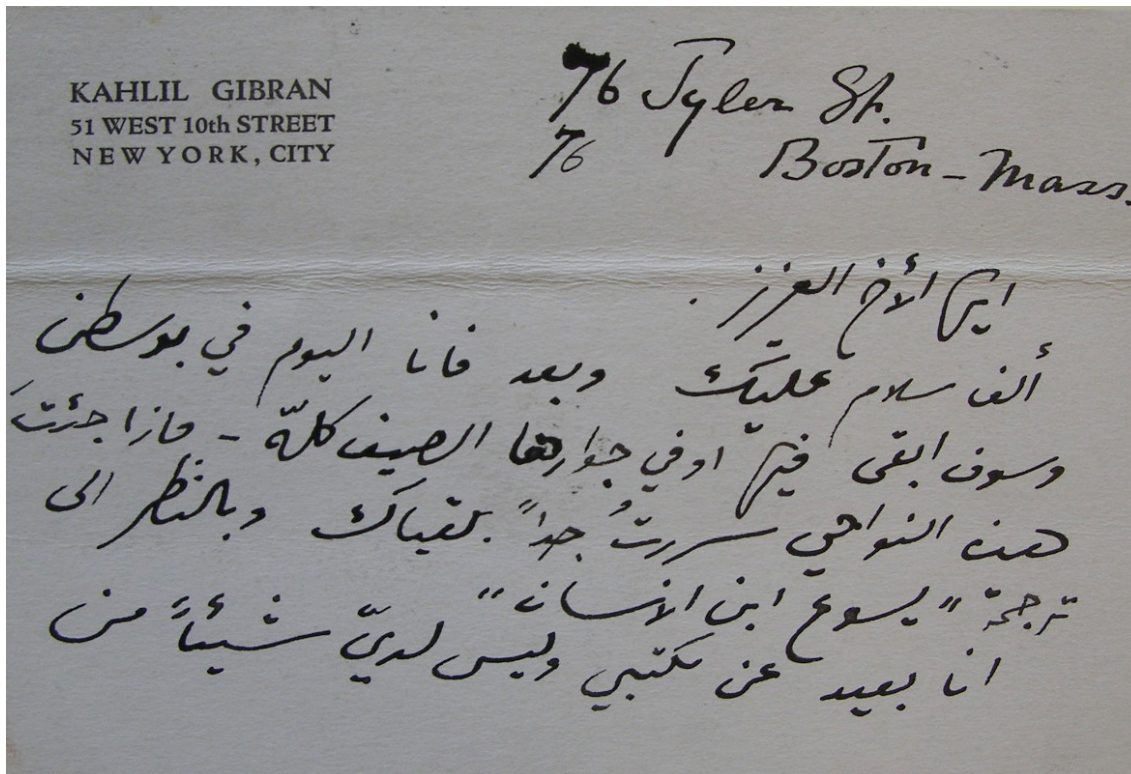 KAHLIL GIBRAN
51 WEST 10th STREET
NEW YORK, CITY
76 Tyler St.
76 Boston - Mass.
ايها الأخ العزيز .
ألف سلام عليك وبعد فانا اليوم في بوسطن
وسوف ابقى فيها او في جوارها الصيف كلّه - فاذا جئتَ
هذه النواحي سررتُ جداً بلقياك وبالنظر الى
ترجمة "يسوع ابن الانسان"
انا بعيد عن مكتبي وليس لديّ شيئاً من